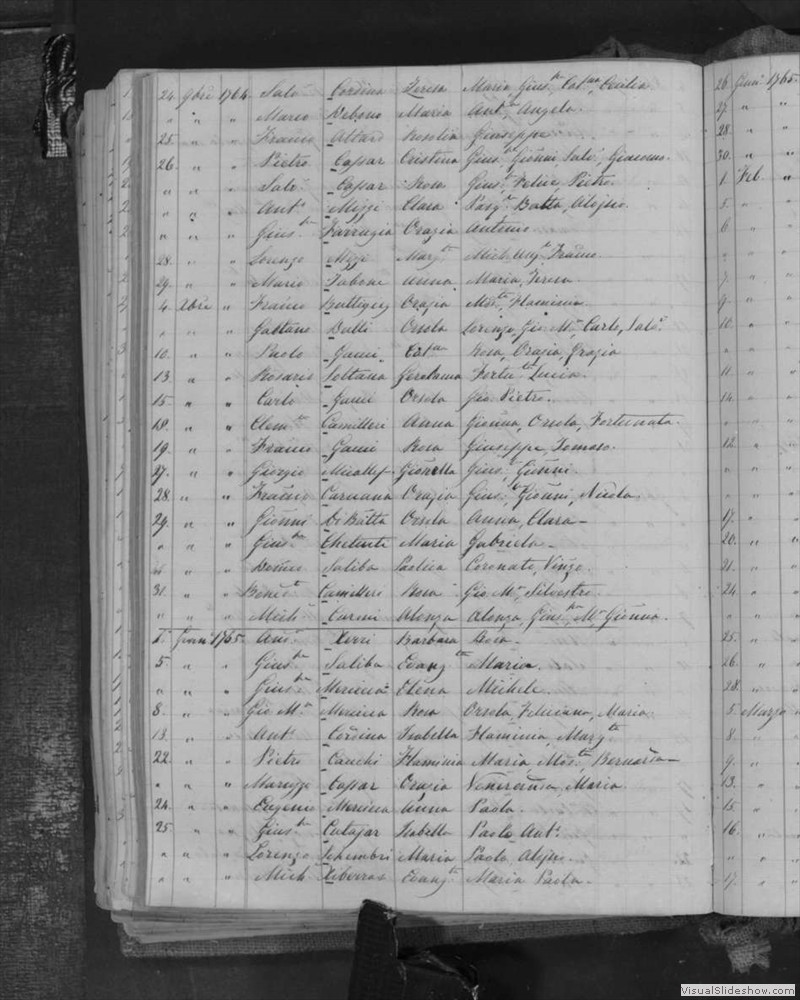 24. 9bre 1764 Salv. Cordina Teresa Maria Gius. Cat.na Cecilia
" " " Marco Debono Maria Ant. Angela.
25. " " Franco Attard Rosolia Giuseppe.
26. " " Pietro Cassar Cristina Gius. Gionni Salv. Giacomo.
" " " Salv. Cassar Rosa Gius. Felice, Pietro.
" " " Ant. Mizzi Clara Pasq. Batta, Aloiseo.
" " " Gius. Farrugia Orazia Antonio
28. " " Lorenzo Mizzi Marg.ta Mich. Ang. Franco.
29. " " Mario Tabone Anna Maria, Teresa.
4. Xbre " Franco Buttigieg Orazia Flaminia.
" " " Gaetano Balli Orsola Lorenzo, Gio M. Carlo, Salv.
10. " " Paolo Gauci Cat.na Rosa, Orazia, Grazia
13. " " Rosario Soltana Gerolama Fortu.ta Lucia.
15. " " Carlo Gauci Orsola Gio Pietro.
18. " " Clem. Camilleri Anna Gionna, Orsola, Fortunata.
19. " " Franco Gauci Rosa Giuseppe, Tomaso.
27. " " Giorgio Micallef Gionella Gius. Gionni.
28. " " Franco Caruana Orazia Gius. Gionni, Nicola.
29. " " Gionni DiBatta Orsola Anna, Clara
" " " Gius. Chetcuti Maria Gabriela
" " " Domco Saliba Paolica Coronato, Vinzo.
31. " " Bened. Camilleri Rosa Gio M. Silvestro.
" " " Mich. Curmi Alonza Alonza, Gius. M. Gionna.
1. Genn. 1765. Ant. Xerri Barbara Rosa
5 " " Gius. Saliba Evang.ta Maria.
" " " Gius. Mercieca Elena Michele.
8. " " Gio M. Mercieca Rosa Orsola, Feliciana, Maria
13. " " Ant. Corsina Isabella Flaminia, Marg.ta
22. " " Pietro Cauchi Flaminia Maria Bernarda
" " " Cassar Orazia Veneranda, Maria.
24. " " Eugenio Mercieca Anna Paola.
25. " " Gius. Cutajar Isabella Paolo Ant.
" " " Lorenzo Schembri Maria Paolo, Aloiseo.
" " " Mich. Xiberras Evang.ta Maria Paola.
26. Genn. 1765.
27. " "
28. " "
30. " "
1. Feb. "
5. " "
6. " "
" " "
7. " "
9. " "
10. " "
" " "
11. " "
14. " "
" " "
12. " "
" " "
" " "
17. " "
20. " "
21. " "
24. " "
" " "
25. " "
26. " "
28. " "
5. Marzo "
8. " "
9. " "
13. " "
15. " "
16. " "
" " "
17. " "
VisualSlideshow.com